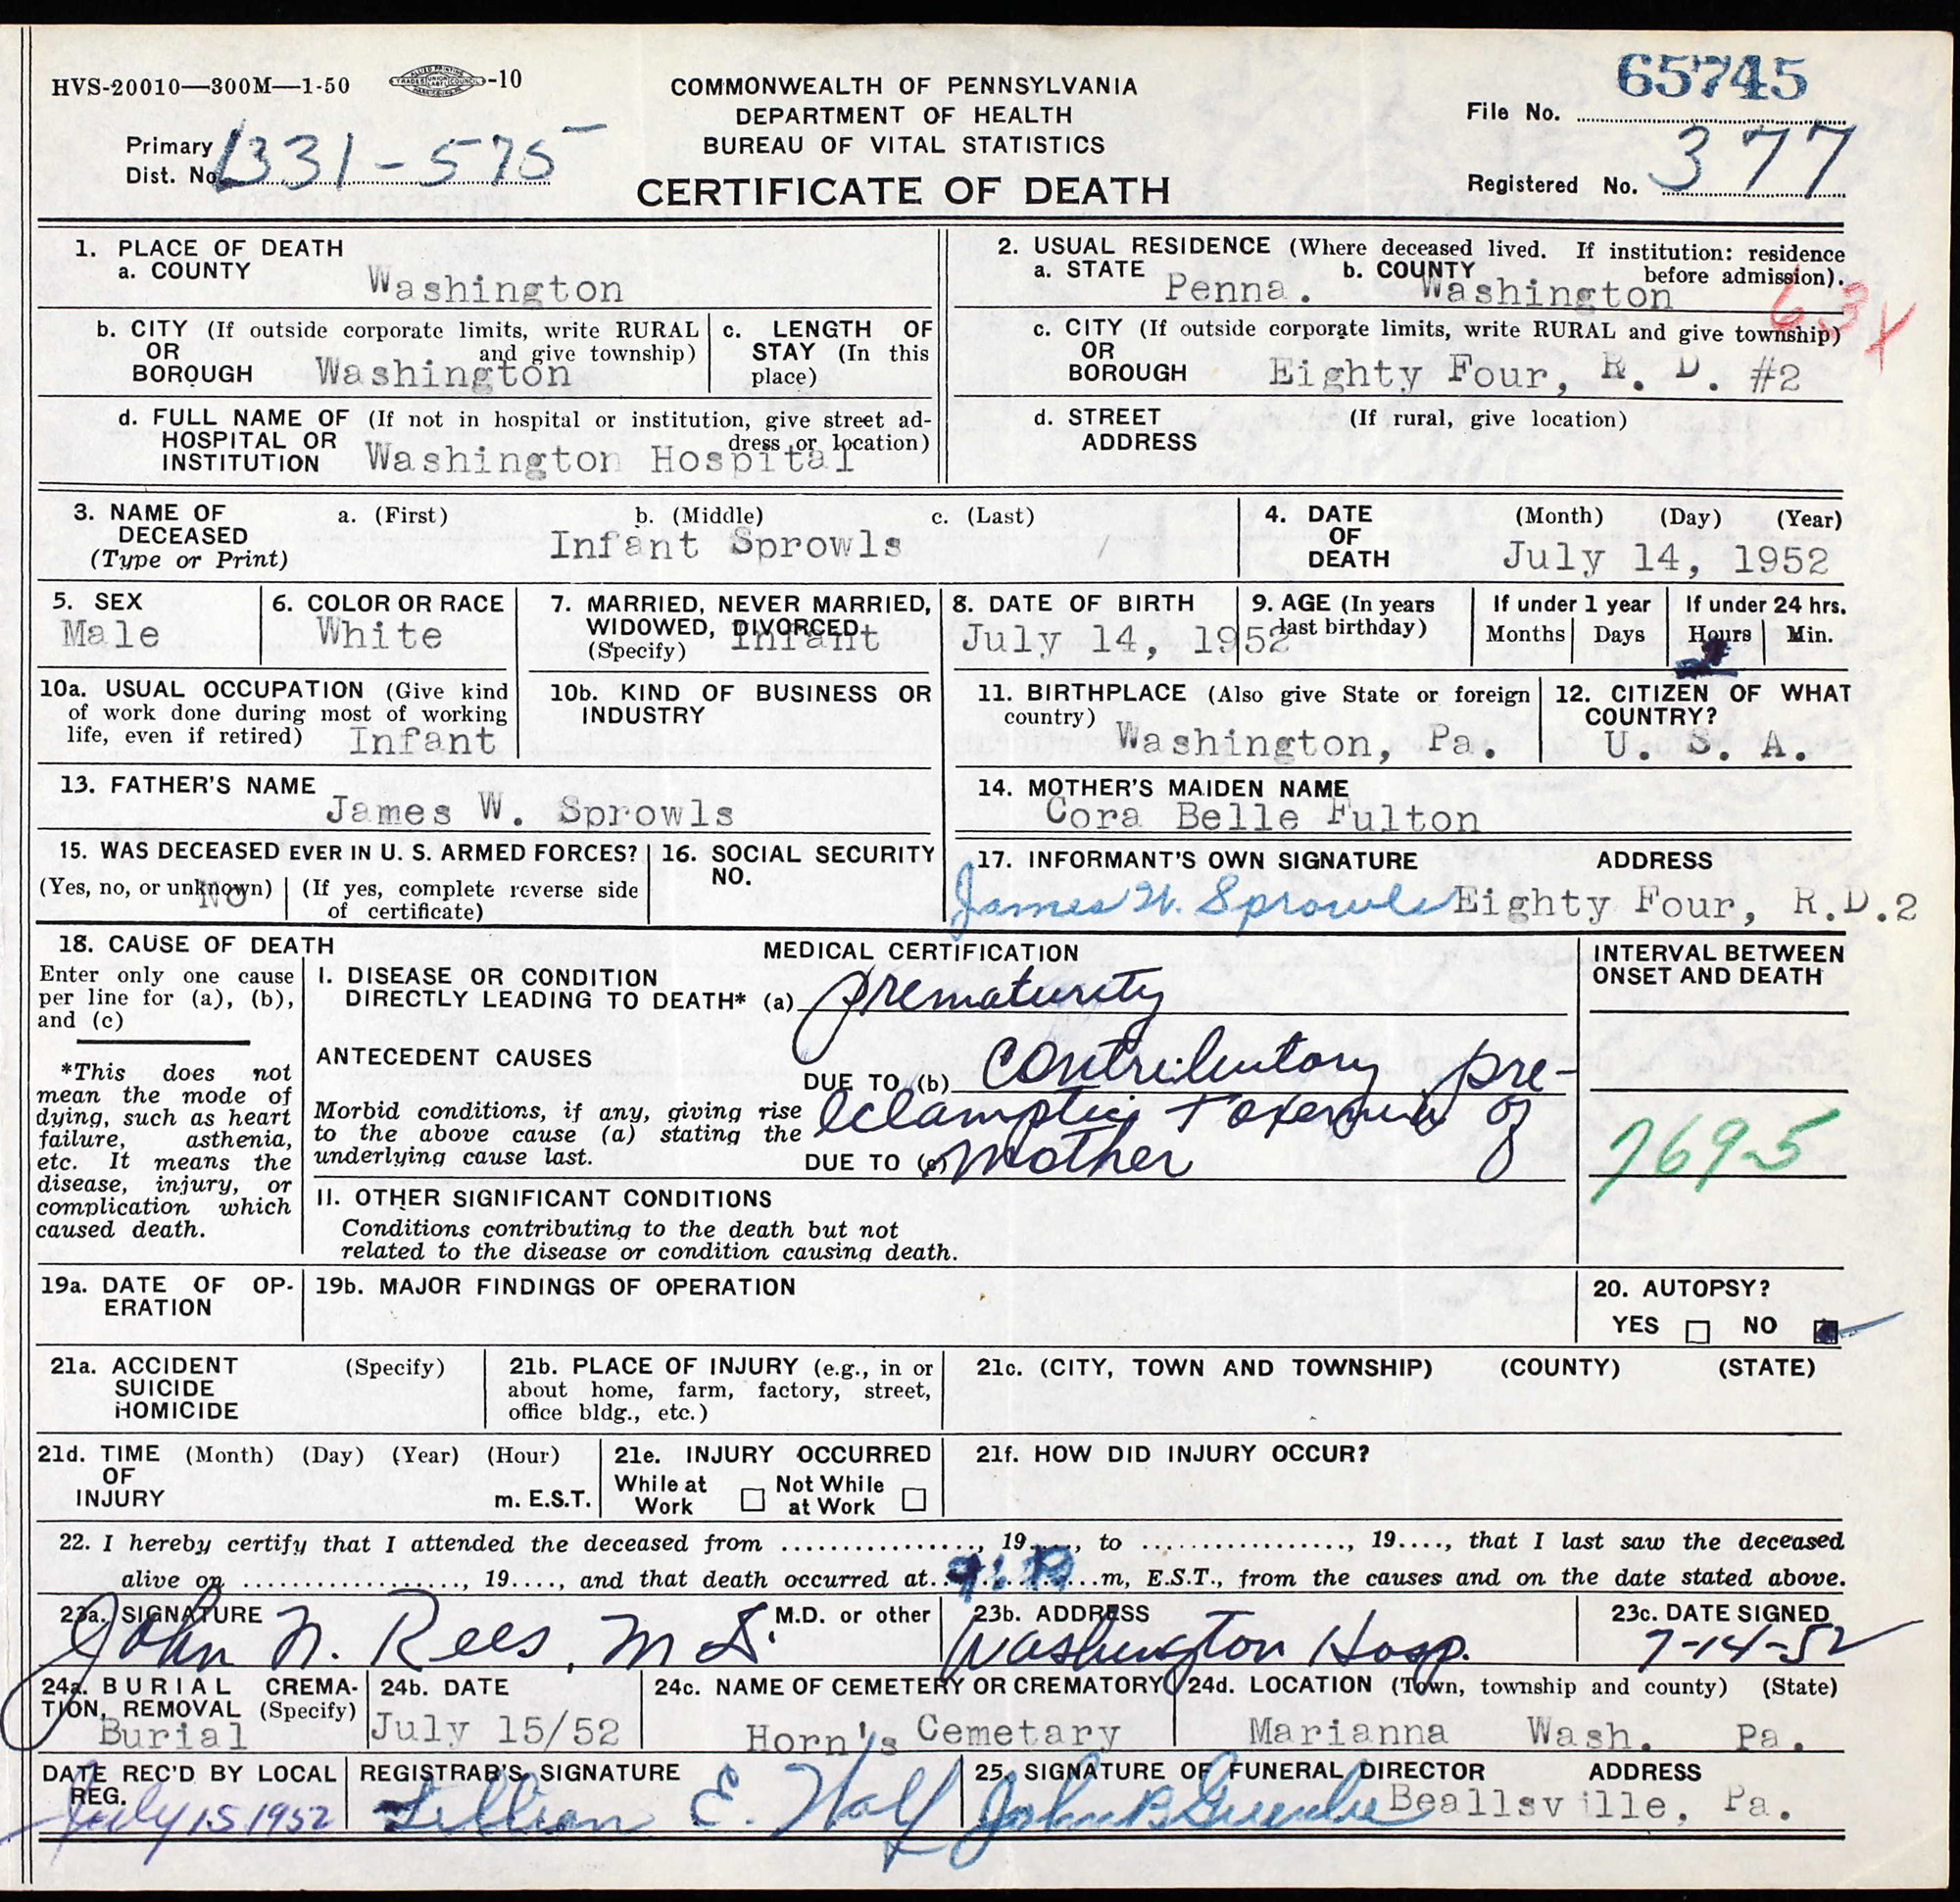 HVS-20010—300M—1-50 -10
COMMONWEALTH OF PENNSYLVANIA
DEPARTMENT OF HEALTH
BUREAU OF VITAL STATISTICS
CERTIFICATE OF DEATH
Primary
Dist. No. 1331-575
65745
File No.
Registered No. 377
1. PLACE OF DEATH
a. COUNTY
Washington
b. CITY (If outside corporate limits, write RURAL
OR and give township)
BOROUGH Washington
c. LENGTH OF
STAY (In this
place)
d. FULL NAME OF (If not in hospital or institution, give street ad-
HOSPITAL OR dress or location)
INSTITUTION Washington Hospital
2. USUAL RESIDENCE (Where deceased lived. If institution: residence
a. STATE b. COUNTY before admission).
Penna. Washington
63
c. CITY (If outside corporate limits, write RURAL and give township)
OR
BOROUGH Eighty Four, R. D. #2
d. STREET (If rural, give location)
ADDRESS
3. NAME OF a. (First) b. (Middle) c. (Last)
DECEASED
(Type or Print) Infant Sprowls
4. DATE (Month) (Day) (Year)
OF
DEATH July 14, 1952
5. SEX
Male
6. COLOR OR RACE
White
7. MARRIED, NEVER MARRIED,
WIDOWED, DIVORCED
(Specify) Infant
8. DATE OF BIRTH
July 14, 1952
9. AGE (In years
last birthday)
If under 1 year
Months Days
If under 24 hrs.
Hours Min.
10a. USUAL OCCUPATION (Give kind
of work done during most of working
life, even if retired) Infant
10b. KIND OF BUSINESS OR
INDUSTRY
11. BIRTHPLACE (Also give State or foreign
country)
Washington, Pa.
12. CITIZEN OF WHAT
COUNTRY?
U. S. A.
13. FATHER'S NAME
James W. Sprowls
14. MOTHER'S MAIDEN NAME
Cora Belle Fulton
15. WAS DECEASED EVER IN U. S. ARMED FORCES?
(Yes, no, or unknown) (If yes, complete reverse side
No of certificate)
16. SOCIAL SECURITY
NO.
17. INFORMANT'S OWN SIGNATURE ADDRESS
James W. Sprowls Eighty Four, R.D.2
18. CAUSE OF DEATH
Enter only one cause
per line for (a), (b),
and (c)
*This does not
mean the mode of
dying, such as heart
failure, asthenia,
etc. It means the
disease, injury, or
complication which
caused death.
MEDICAL CERTIFICATION
I. DISEASE OR CONDITION
DIRECTLY LEADING TO DEATH* (a) prematurity
ANTECEDENT CAUSES
DUE TO (b) Contributory pre-
Morbid conditions, if any, giving rise
to the above cause (a) stating the
underlying cause last.
eclamptic toxemia of
DUE TO (c) Mother
II. OTHER SIGNIFICANT CONDITIONS
Conditions contributing to the death but not
related to the disease or condition causing death.
INTERVAL BETWEEN
ONSET AND DEATH
7695
19a. DATE OF OP-
ERATION
19b. MAJOR FINDINGS OF OPERATION
20. AUTOPSY?
YES NO
21a. ACCIDENT (Specify)
SUICIDE
HOMICIDE
21b. PLACE OF INJURY (e.g., in or
about home, farm, factory, street,
office bldg., etc.)
21c. (CITY, TOWN AND TOWNSHIP) (COUNTY) (STATE)
21d. TIME (Month) (Day) (Year) (Hour)
OF
INJURY m. E.S.T.
21e. INJURY OCCURRED
While at Not While
Work at Work
21f. HOW DID INJURY OCCUR?
22. I hereby certify that I attended the deceased from ................, 19...., to ................, 19...., that I last saw the deceased
alive on ................, 19...., and that death occurred at ........m, E.S.T., from the causes and on the date stated above.
23a. SIGNATURE M.D. or other
John N. Rees, M D.
23b. ADDRESS
Washington Hosp.
23c. DATE SIGNED
7-14-52
24a. BURIAL CREMA-
TION, REMOVAL (Specify)
Burial
24b. DATE
July 15/52
24c. NAME OF CEMETERY OR CREMATORY
Horn's Cemetary
24d. LOCATION (Town, township and county) (State)
Marianna Wash. Pa.
DATE REC'D BY LOCAL
REG.
July 15 1952
REGISTRAR'S SIGNATURE
Lillian E.
25. SIGNATURE OF FUNERAL DIRECTOR ADDRESS
John B Beallsville, Pa.